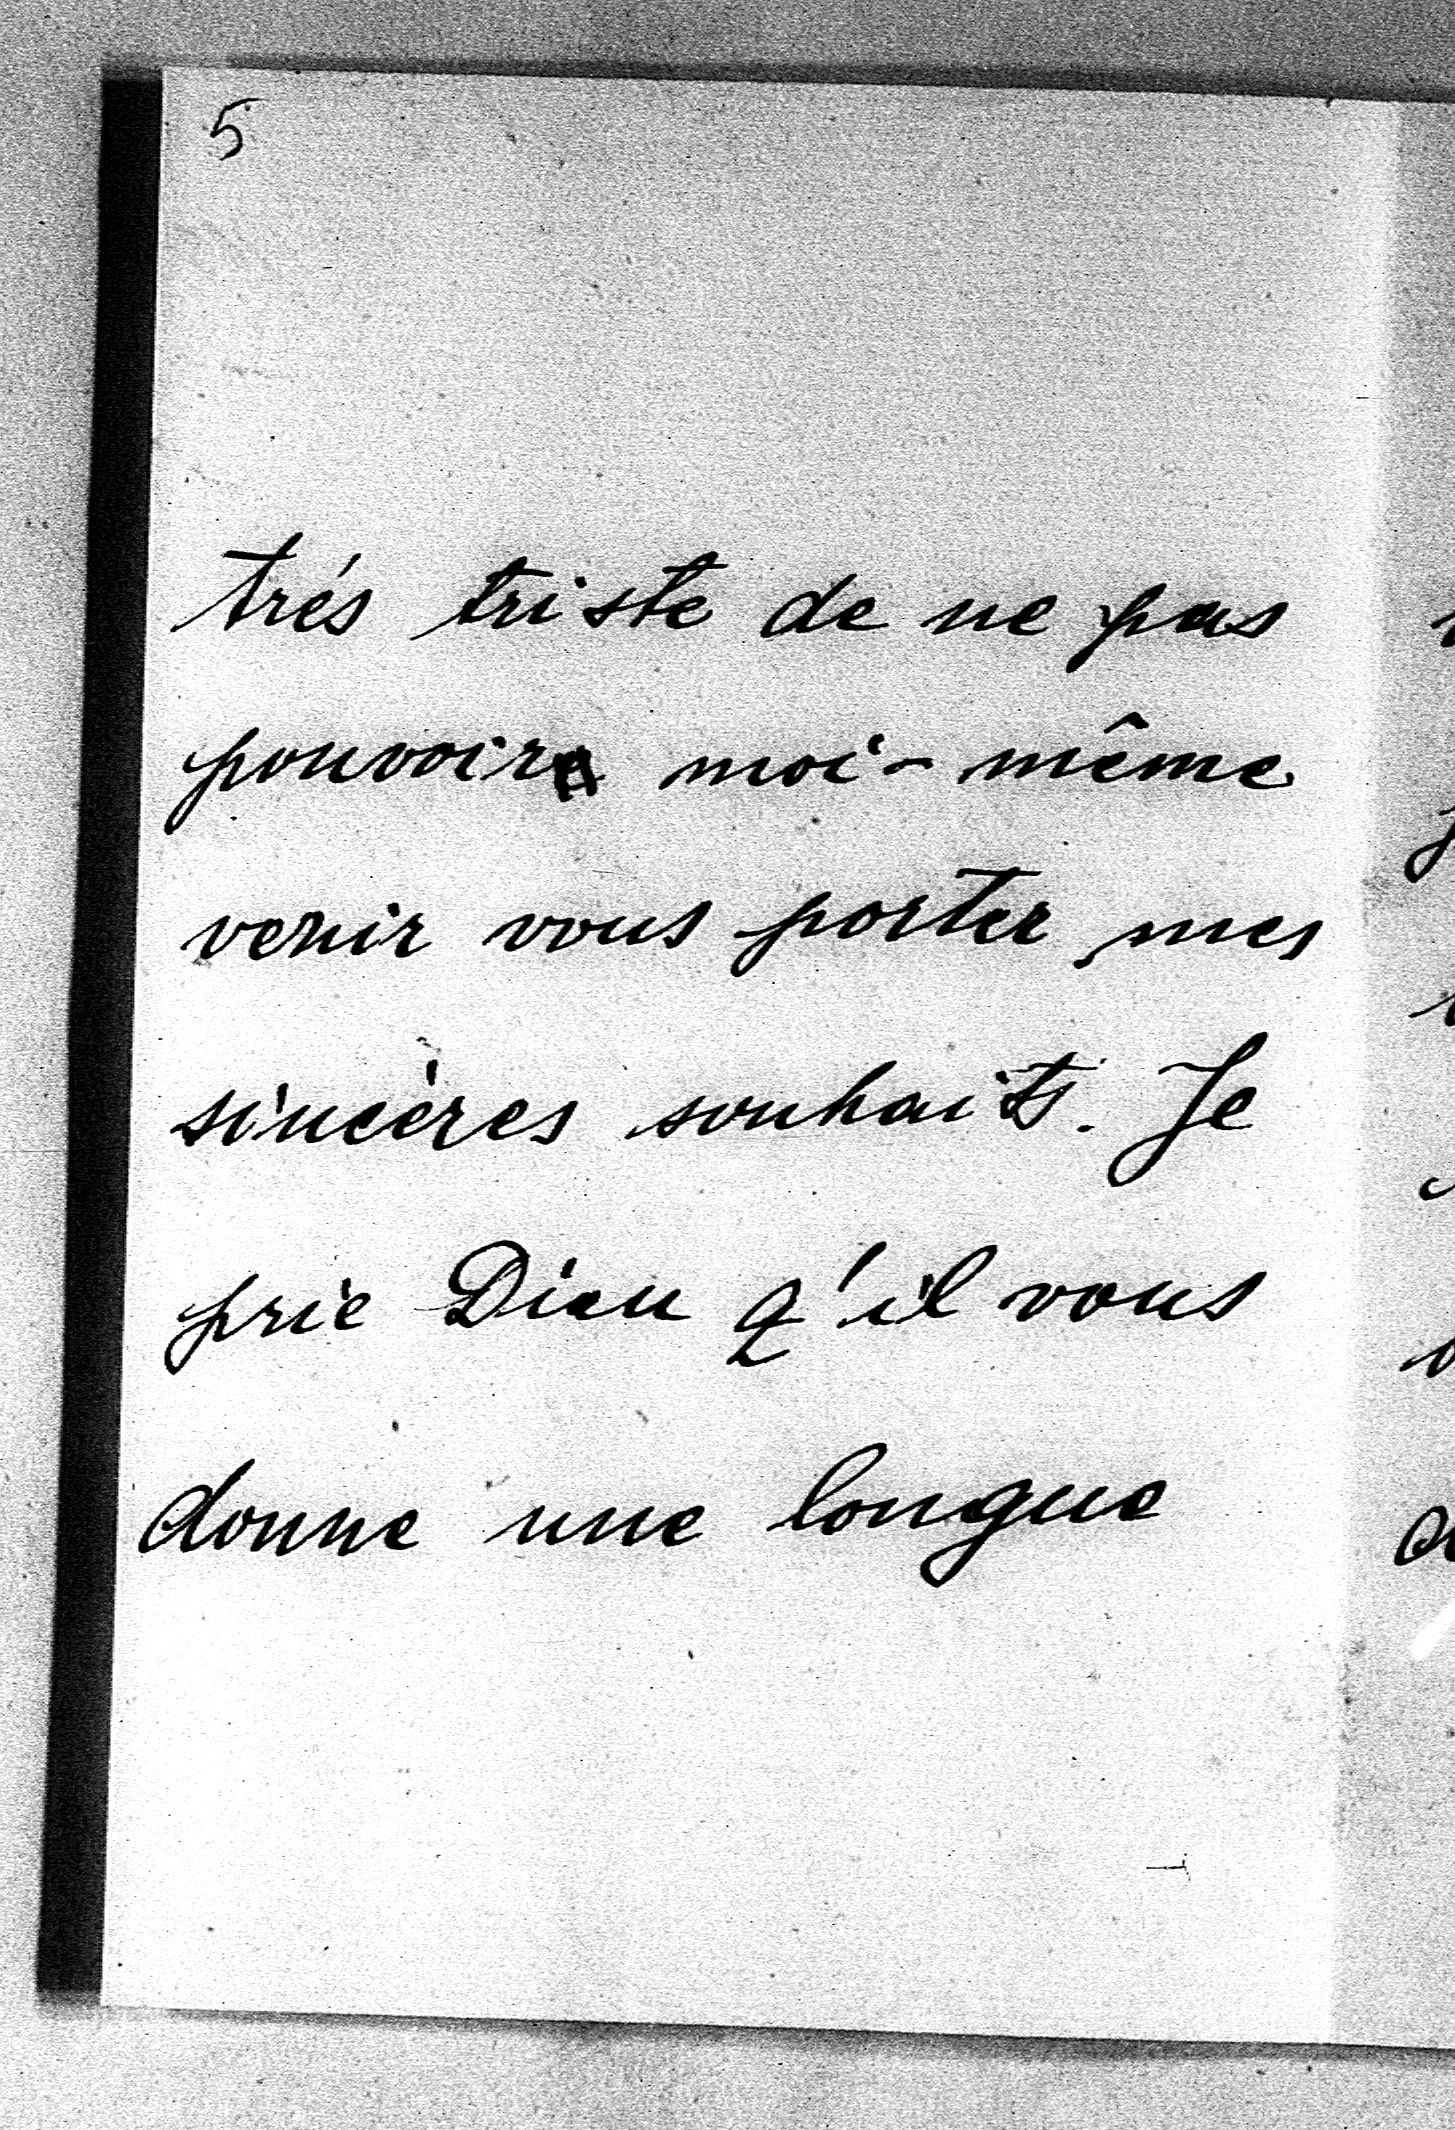 5
trés triste de ne pas
pouvoir moi-même
venir vous porter mes
sincères souhaits. Je
prie Dieu q'il vous
donne une longue